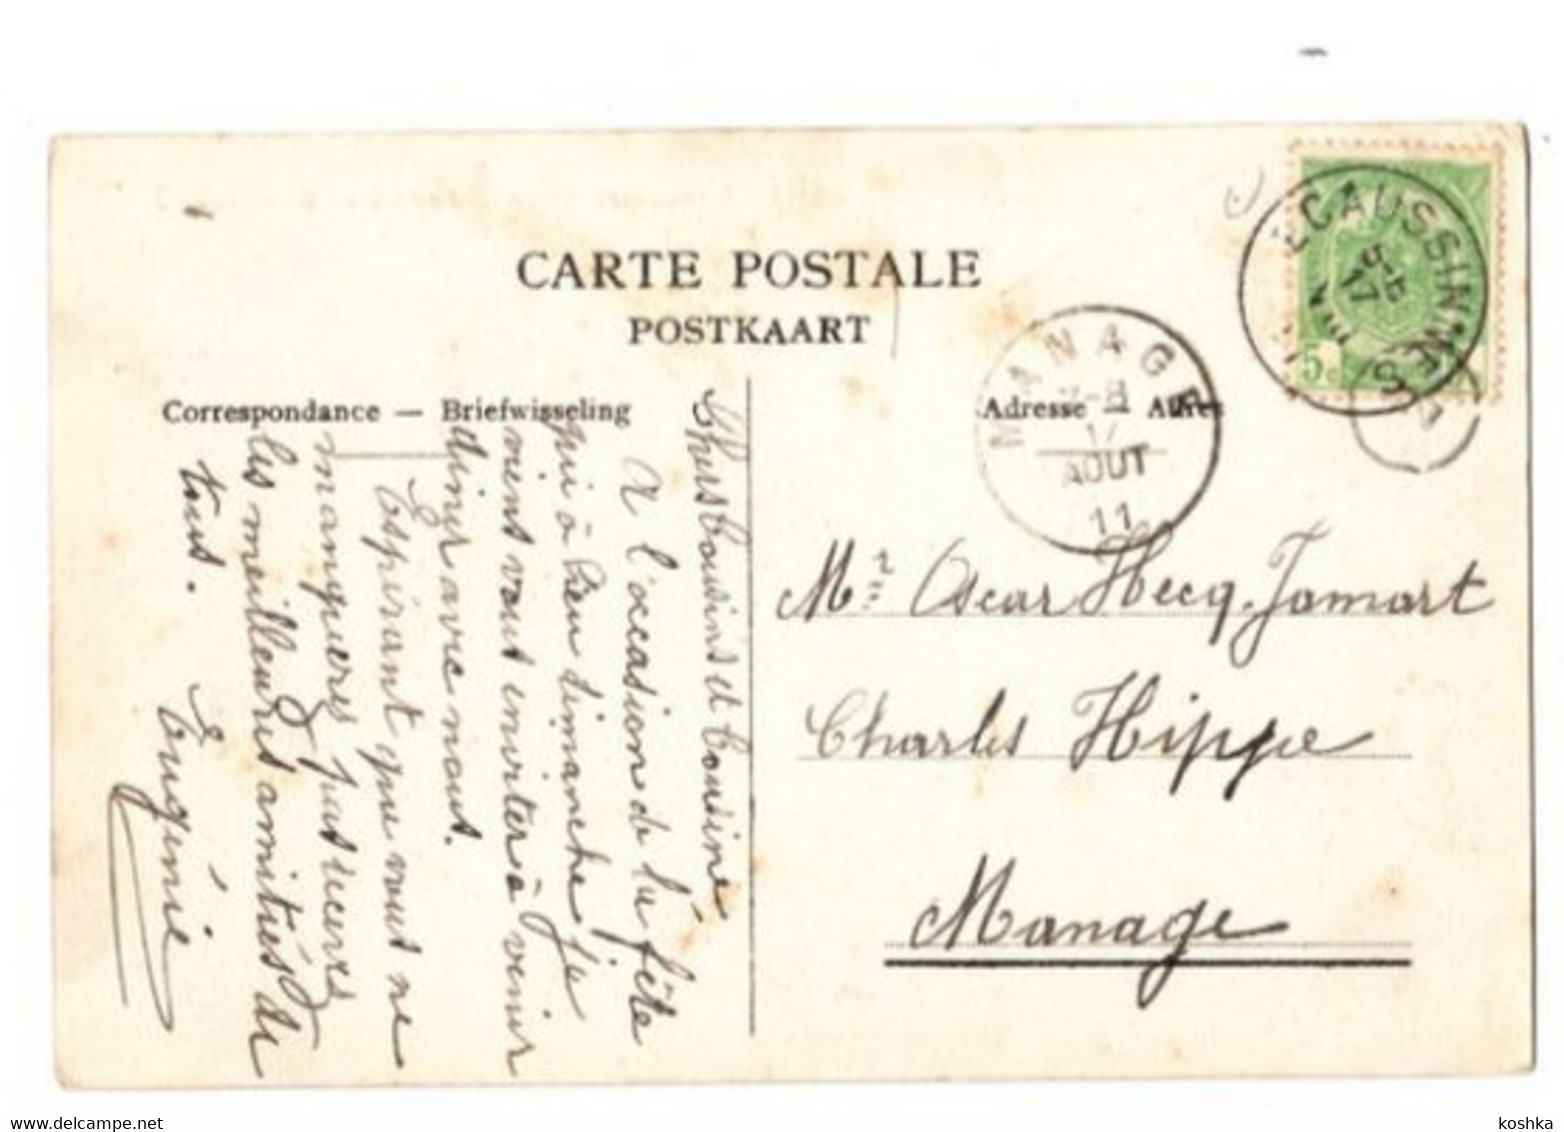 CARTE POSTALE
POSTKAART
Correspondance — Briefwisseling
Adresse — Adres
ECAUSSINNES
5
MANAGE
7-8
17
AOUT
11
Chers Cousins et Cousine
A l'occasion de la fête
qui à lieu dimanche je
viens vous inviter à venir
diner avec nous.
Espérant que vous ne
manquerez pas recevez
les meilleures amitiés de
tous.
Eugénie
Mr Oscar Hecq-Jamart
Charles Hippe
Manage
delcampe.net
koshka